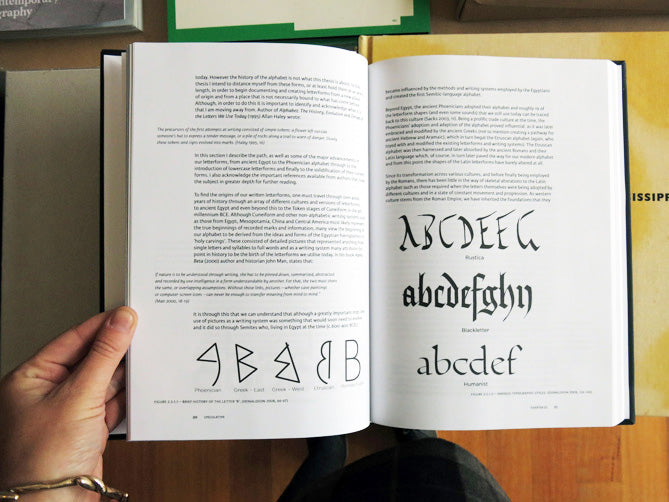 ontemporary
graphy
today. However the history of the alphabet is not what this thesis is about. In this
thesis I intend to distance myself from these forms, or at least hold them at arm's
length, in order to begin documenting and creating letterforms from a new point
of origin and from a place that is not necessarily bound to what has come before.
Although, in order to do this it is important to identify and acknowledge what it is
that I am moving away from. Author of Alphabet: The History, Evolution and Design of
the Letters We Use Today (1995) Allan Haley wrote:
The precursors of the first attempts at writing consisted of simple tokens: a flower left outside
someone's hut to express a tender message, or a pile of rocks along a trail to warn of danger. Slowly
these tokens and signs evolved into marks. (Haley 1995, 16)
In this section I describe the path, as well as some of the major advancements in
our letterforms, from ancient Egypt to the Phoenician alphabet through to the
introduction of lowercase letterforms and finally to the solidification of their current
forms. I also acknowledge the important references available from authors that treat
the subject in greater depth for further reading.
To find the origins of our written letterforms, one must travel through over
years of history through an array of different cultures and versions of letterforms
to ancient Egypt and even beyond this to the Token stages of Cuneiform in the
millennium BCE. Although Cuneiform and other non-alphabetic writing systems such
as those from Egypt, Mesopotamia, China and Central America most likely represent
the true beginnings of recorded marks and information, many view the beginnings of
our alphabet to be derived from the ideas and forms of the Egyptian hieroglyphs or
'holy carvings'. These consisted of detailed pictures that represented anything from
single letters and syllables to full words and as a writing system many attribute this
point in history to be the birth of the letterforms we utilise today. In his book Alpha
Beta (2000) author and historian John Man, states that:
If nature is to be understood through writing, she has to be pinned down, summarized, abstracted
and recorded by one intelligence in a form understandable by another. For that, the two must share
the same, or overlapping assumptions. Without those links, pictures—whether cave paintings
or computer-screen icons—can never be enough to transfer meaning from mind to mind.
(Man 2000, 18-19)
It is through this that we can understand that although a greatly important step, the
use of pictures as a writing system was something that would soon need to evolve
and it did so through Semites who, living in Egypt at the time (c.1800 BCE)
B B B B B
Phoenician Greek - East Greek - West Etruscan
FIGURE 2.2.1.1 – BRIEF HISTORY OF THE LETTER 'B'.
SPECULATIVE
became influenced by the methods and writing systems employed by the Egyptians
and created the first Semitic language alphabet.
Beyond Egypt, the ancient Phoenicians adopted their alphabet and roughly 19 of
the letterform shapes (and even some sounds) that we still use today can be traced
back to this culture (Sacks 2003, 11). Being a prolific trade culture at the time, the
Phoenicians' adoption and adaption of the alphabet proved influential, as it was later
embraced and modified by the ancient Greeks (not to mention creating a pathway for
ancient Hebrew and Aramaic), which in turn begat the Etruscan alphabet (again, who
toyed with and modified the existing letterforms and writing systems). The Etruscan
alphabet was then harnessed and later absorbed by the ancient Romans and their
Latin language which, of course, in turn later paved the way for our modern alphabet
and from this point the shapes of the Latin letterforms have barely altered at all.
Since its transformation across various cultures, and before finally being employed
by the Romans, there has been little in the way of skeletal alterations to the Latin
alphabet such as those required when the letters themselves were being adopted by
different cultures and in a state of constant movement and progression. As western
culture stems from the Roman Empire, we have inherited the foundations that they
ABCDEFG
Rustica
abcdefghij
Blackletter
abcdef
Humanist
FIGURE 2.2.1.2 – VARIOUS TYPOGRAPHIC STYLES.
ISSIPP